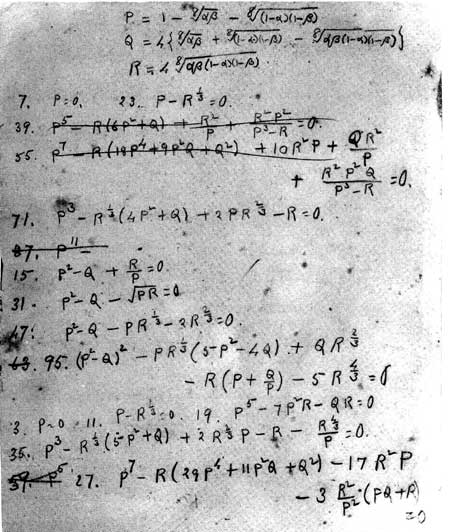 P = 1 - ⁸√αβ - ⁸√(1-α)(1-β)
Q = 4{⁸√αβ + ⁸√(1-α)(1-β) - ⁸√αβ(1-α)(1-β)}
R = 4 ⁸√αβ(1-α)(1-β)
7. P=0. 23. P - R^{1/3} = 0.
39. P^5 - R(6P^2+Q) + R^2/P + R^2P^2/(P^3-R) = 0.
55. P^7 - R(19P^4+9P^2Q+Q^2) + 10R^2P + QR^2/P
+ R^2P^2Q/(P^3-R) = 0.
71. P^3 - R^{1/3}(4P^2+Q) + 2PR^{2/3} - R = 0.
87. P^11 -
15. P^2 - Q + R/P = 0.
31. P^2 - Q - √PR = 0
47. P^2 - Q - PR^{1/3} - 2R^{2/3} = 0.
63. 95. (P^2-Q)^2 - PR^{1/3}(5P^2-4Q) + QR^{2/3}
- R(P + Q/P) - 5R^{4/3} = 0
3. P=0 11. P - R^{1/3} = 0. 19. P^5 - 7P^2R - QR = 0
35. P^3 - R^{1/3}(5P^2+Q) + 2R^{2/3}P - R - R^{4/3}/P = 0.
59. P^5 27. P^7 - R(29P^4+11P^2Q+Q^2) - 17R^2P
- 3 R^2/P^2 (PQ+R)
= 0